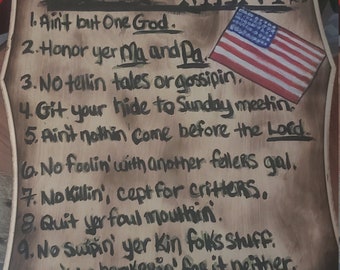 1. Ain't but One God.
2. Honor yer Ma and Pa
3. No tellin tales or gossipin.
4. Git your hide to Sunday meetin.
5. Ain't nothin come before the Lord.
6. No foolin' with another fellers gal.
7. No killin', cept for critters.
8. Quit yer foul mouthin'.
9. No swipin' yer kin folks stuff.
for it neither.